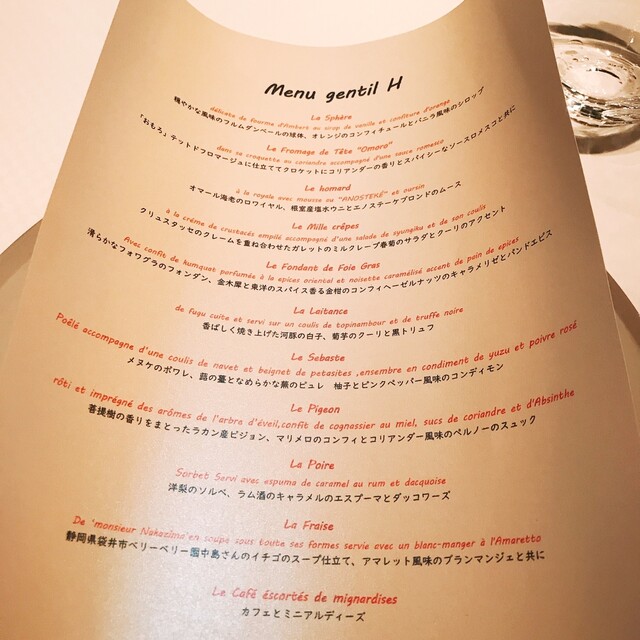 Menu gentil H
La Sphère
délicate de fourme d'Ambert au sirop de vanille et confiture d'orange
穏やかな風味のフルムダンベールの球体、オレンジのコンフィチュールとバニラ風味のシロップ
Le Fromage de Tête "Omoro"
dans sa croquette au coriandre accompagné d'une sauce romesco
「おもろ」テットドフロマージュに仕立ててクロケットにコリアンダーの香りとスパイシーなソースロメスコと共に
Le homard
à la royale avec mousse au "ANOSTEKÉ" et oursin
オマール海老のロワイヤル、根室産塩水ウニとエノステーケブロンドのムース
Le Mille crêpes
à la crème de crustacés empilé accompagné d'une salade de syungiku et de son coulis
クリュスタッセのクレームを重ね合わせたガレットのミルクレープ春菊のサラダとクーリのアクセント
Le Fondant de Foie Gras
Avec confit de kumquat porfumée à la epices oriental et noisette caramélisé accent de pain de epices
滑らかなフォワグラのフォンダン、金木犀と東洋のスパイス香る金柑のコンフィヘーゼルナッツのキャラメリゼとパンドエピス
La Laitance
de fugu cuite et servi sur un coulis de topinambour et de truffe noire
香ばしく焼き上げた河豚の白子、菊芋のクーリと黒トリュフ
Le Sebaste
Poêlé accompagne d'une coulis de navet et beignet de petasites ,ensembre en condiment de yuzu et poivre rosé
メヌケのポワレ、蕗の薹となめらかな蕪のピュレ 柚子とピンクペッパー風味のコンディモン
Le Pigeon
rôti et imprégné des arômes de l'arbra d'éveil,confit de cognassier au miel, sucs de coriandre et d'Absinthe
菩提樹の香りをまとったラカン産ピジョン、マリメロのコンフィとコリアンダー風味のペルノーのスュック
La Poire
Sorbet Servi avec espuma de caramel au rum et dacquoise
洋梨のソルベ、ラム酒のキャラメルのエスプーマとダッコワーズ
La Fraise
De 'monsieur Nakazima'en soupe sous toute ses formes servie avec un blanc-manger à l'Amaretto
静岡県袋井市ベリーベリー園中島さんのイチゴのスープ仕立て、アマレット風味のブランマンジェと共に
Le Café éscortés de mignardises
カフェとミニアルディーズ